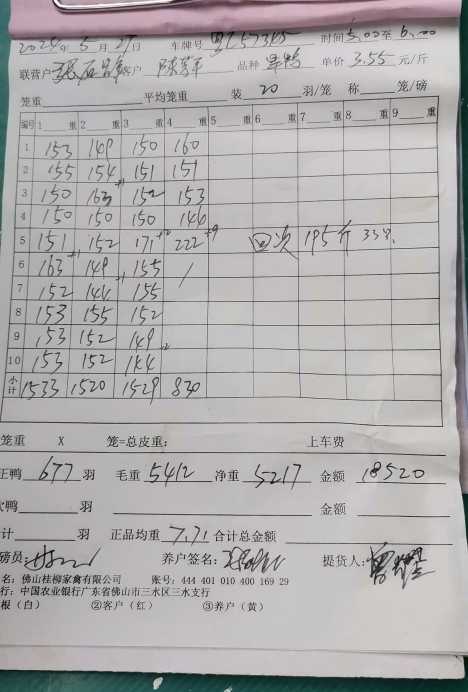 2024年5月27日 车牌号 时间5:00至6:00
联营户 客户 品种 单价 3.55 元/斤
笼重 平均笼重 装 20 羽/笼 称 笼/磅
编号 1 重 2 重 3 重 4 重 5 重 6 重 7 重 8 重 9 重
1 153 149 150 160
2 155 154 151 151
3 150 163 +1 152 153
4 150 150 150 144
5 151 152 171 +2 222 +9 回次 195斤 33只
6 163 +1 149 155 /
7 152 144 -1 155
8 153 155 152
9 153 152 149
10 153 152 144 -2
小计 1533 1520 1529 830
笼重 X 笼=总皮重: 上车费
正鸭 677 羽 毛重 5412 净重 5217 金额 18520
次鸭 羽 金额
计 羽 正品均重 7.71 合计总金额
磅员: 养户签名: 提货人:
名: 佛山桂柳家禽有限公司 账号: 444 401 010 400 169 29
行: 中国农业银行广东省佛山市三水区三水支行
根(白) ②客户(红) ③养户(黄)